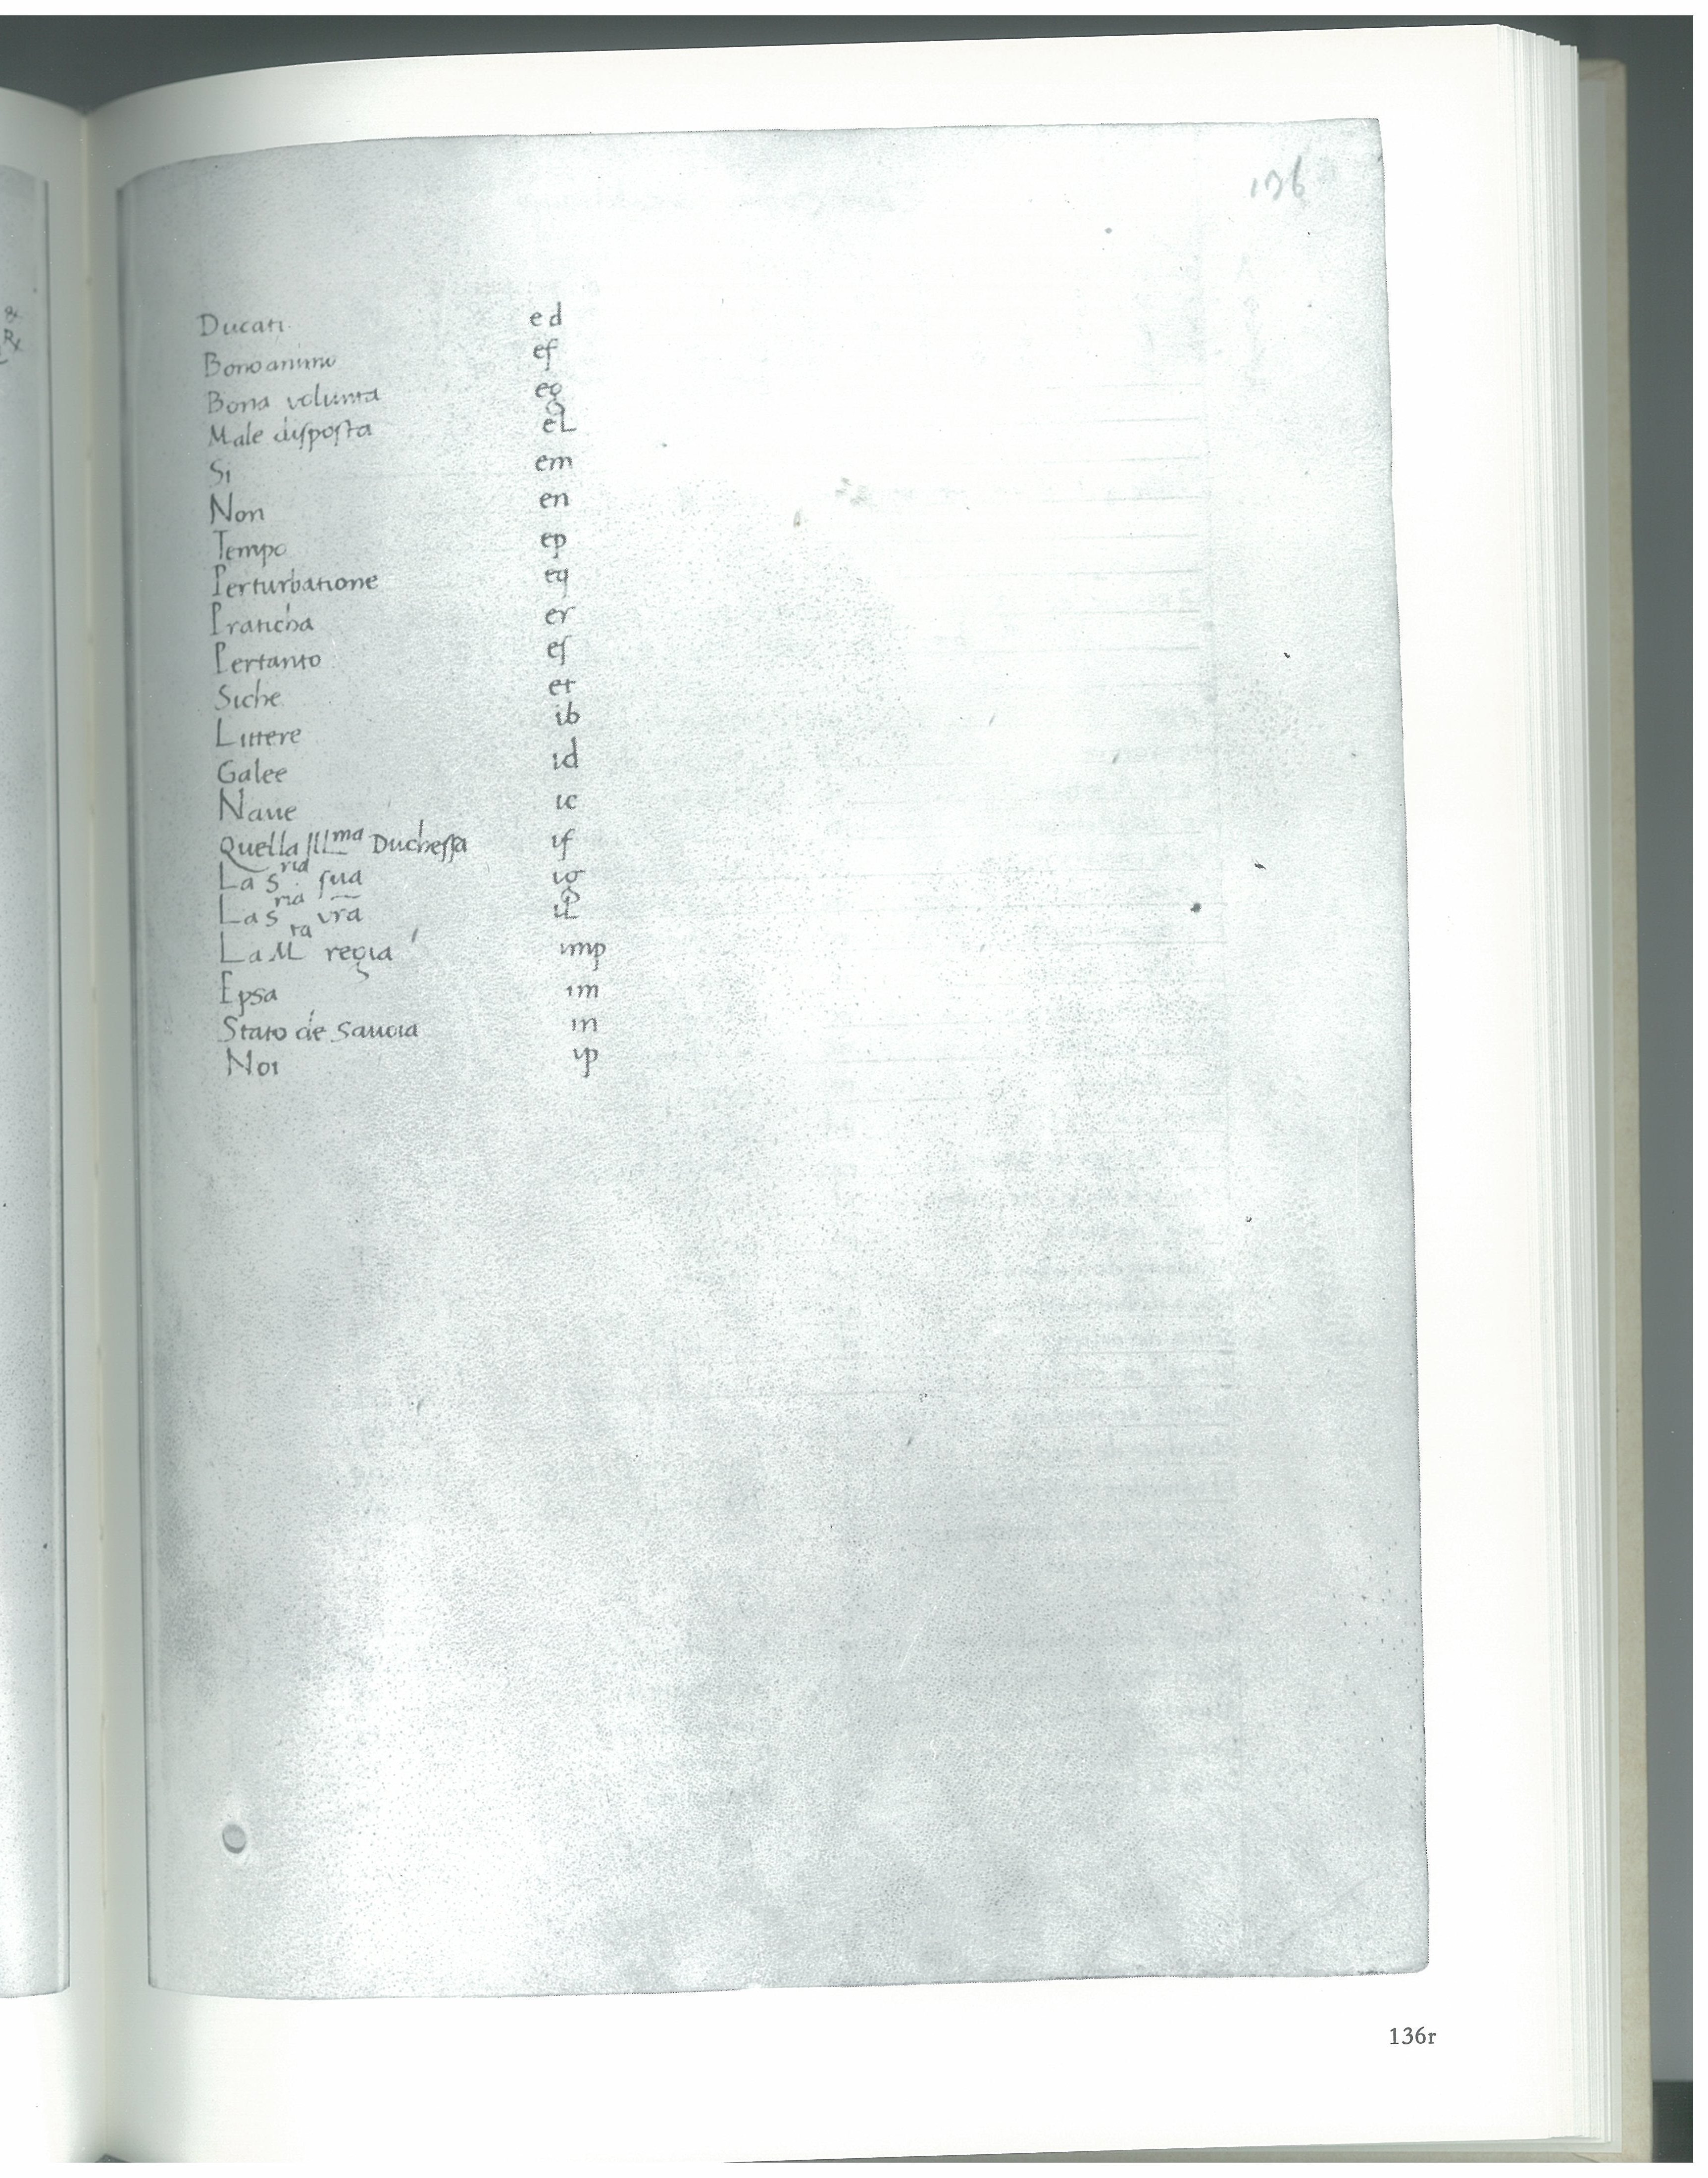 136
&
Rx
Ducati ed
Bono animo ef
Bona volunta eg
Male disposta el
Si em
Non en
Tempo ep
Perturbatione eq
Praticha er
Pertanto es
Siche et
Littere ib
Galee id
Naue ic
Quella Illma Duchessa if
La Sria sua ig
La Sria vra il
La Mta regia imp
Epsa im
Stato de Sauoia in
Noi ip
136r